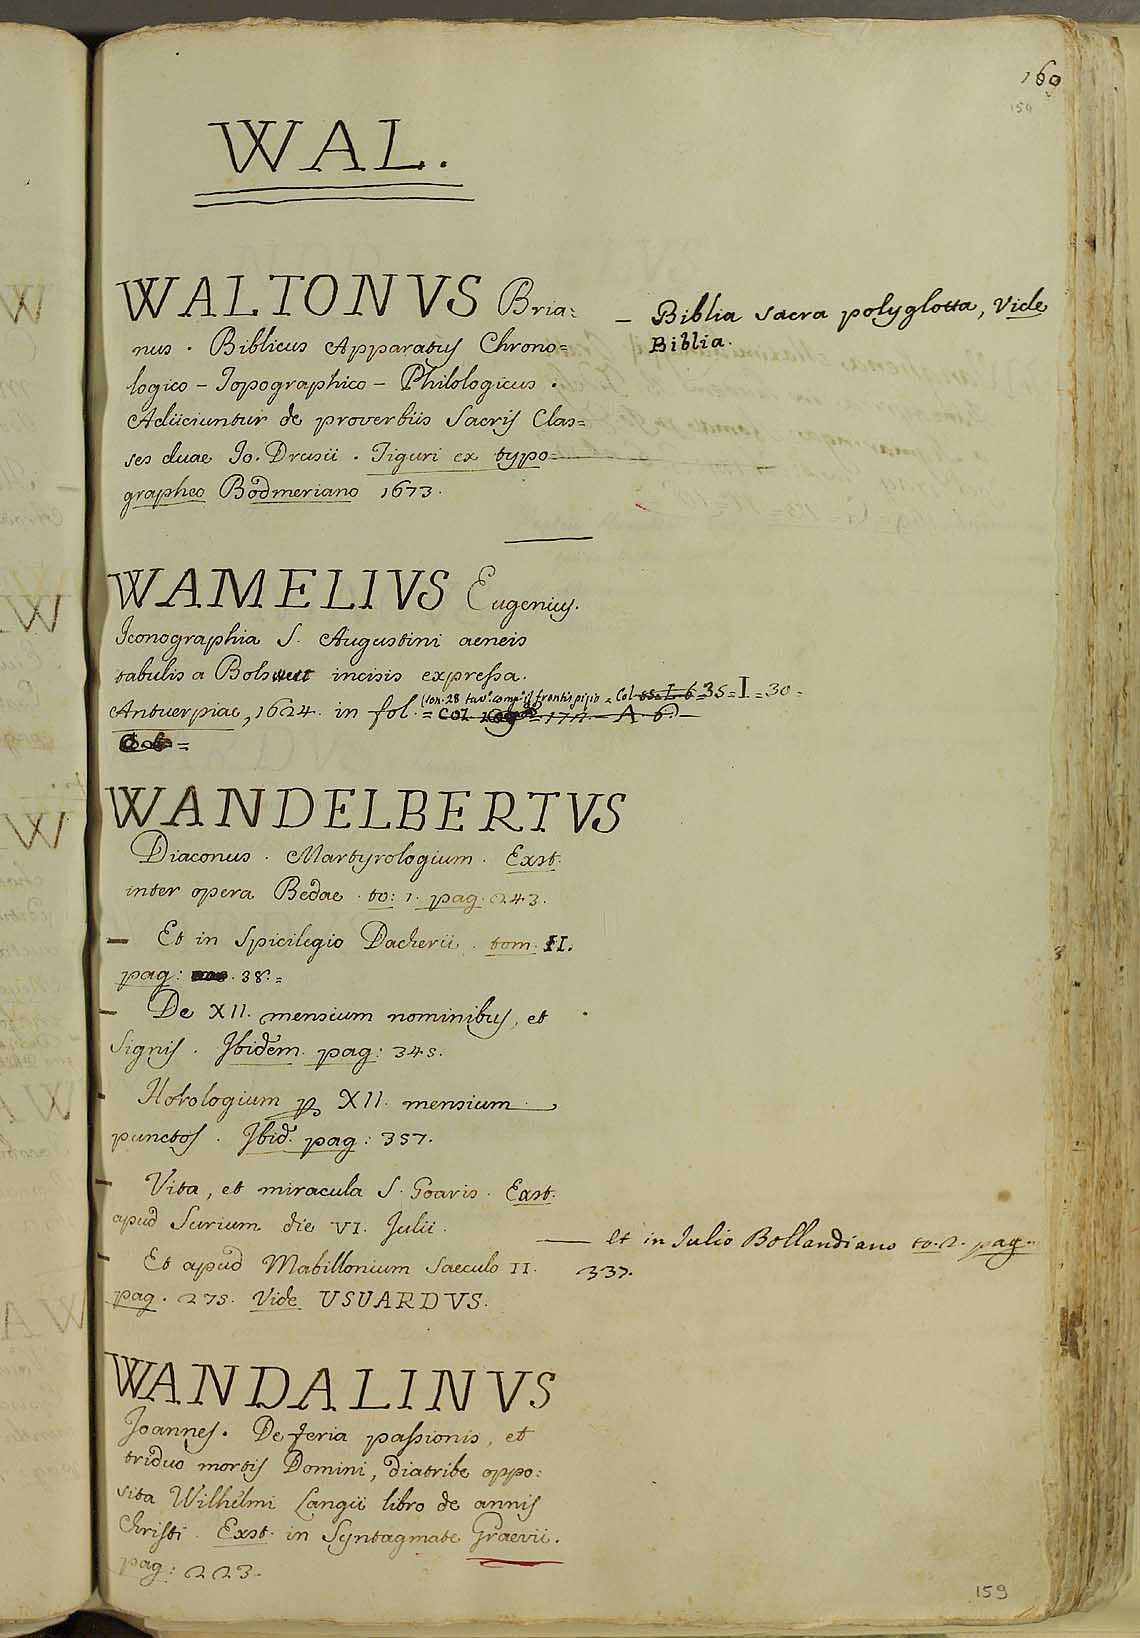 160
159
WAL.
WALTONVS Bria=
nus. Biblicus Apparatus Chrono=
logico - Topographico - Philologicus.
Adiiciuntur de proverbiis Sacris Clas=
ses duae Io. Drusii. Tiguri ex typo=
grapheo Bodmeriano 1673.
— Biblia sacra polyglotta, Vide
Biblia.
WAMELIVS Eugenius.
Iconographia S. Augustini aeneis
tabulis a Bolswert incisis expressa.
(con. 28 tav. comp. il frontispizio = Col. 35=I=30=
Antuerpiae, 1624. in fol. = Col. 172. - A. 6 -
WANDELBERTVS
Diaconus. Martyrologium. Exst.
inter opera Bedae. to: 1. pag. 243.
— Et in Spicilegio Dacherii. tom. II.
pag: 38.=
— De XII. mensium nominibus, et
signis. Ibidem. pag: 345.
- Horologium p XII. mensium
punctos. Ibid. pag: 357.
- Vita, et miracula S. Goaris. Exst.
apud Surium die VI. Julii.
- Et apud Mabillonium Saeculo II.
pag. 275. Vide USUARDVS.
— et in Julio Bollandiano to. 2. pag.
337.
WANDALINVS
Joannes. De feria passionis, et
triduo mortis Domini, diatribe oppo=
sita Wilhelmi Langii libro de annis
Christi. Exst. in Syntagmate Graevii.
pag: 223.
159